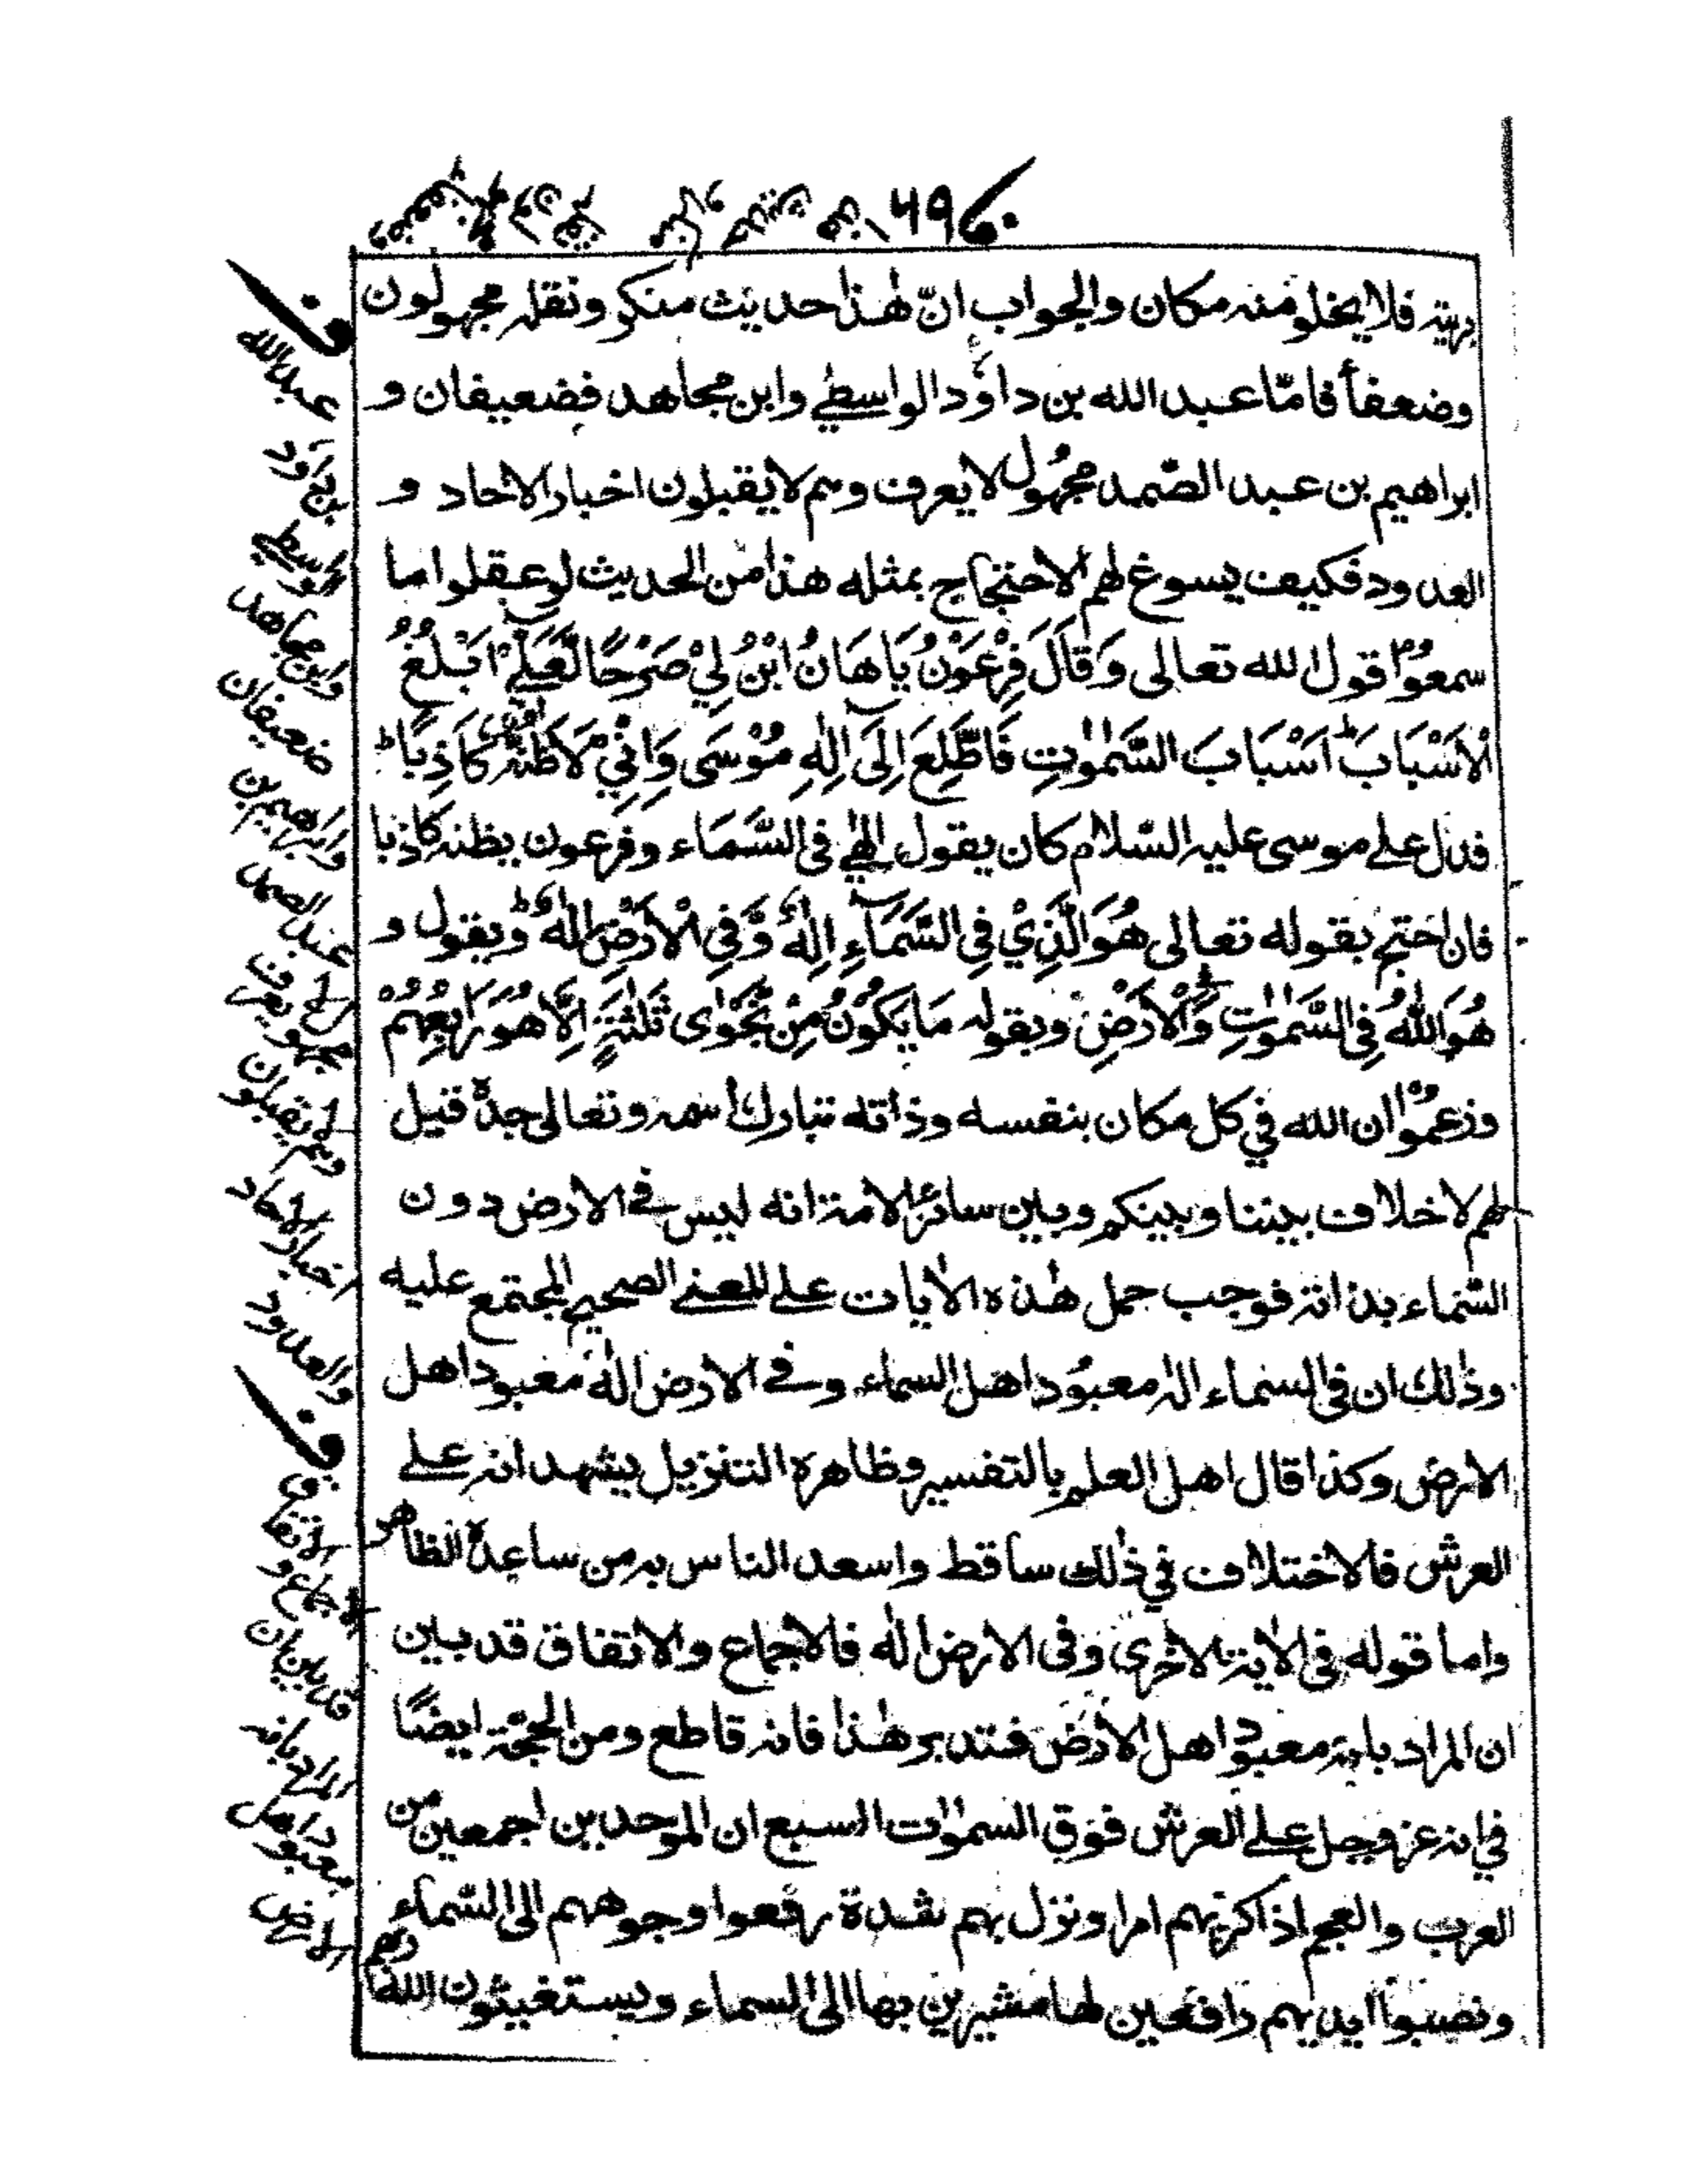 ٦٩
بريته فلا يخلو منه مكان والجواب انّ هٰذا حديث منكر ونقله مجهولون
وضعفأ فامّا عبد الله بن داوٗد الواسطے وابن مجاهد فضعيفان و
ابراهيم بن عبد الصّمد مجهُول لا يعرف وہم لا يقبلون اخبار الاحاد و
العدود فكيف يسوغ لهم الاحتجاج بمثله هذا من الحديث لو عقلوا اما
سمعوا قول الله تعالى وَقَالَ فِرْعَوْنُ يَا هَامَانُ ابْنُ لِيْ صَرْحًا لَّعَلِّے اَبْلُغُ
الْاَسْبَابَ اَسْبَابَ السَّمٰوٰتِ فَاَطَّلِعَ اِلٰى اِلٰهِ مُوْسٰى وَاِنِّيْ لَاَظُنُّهٗ كَاذِبًا ط
فدل علے موسى عليه السّلام كان يقول الٰهے فى السَّمَاء وفرعون يظنه كاذبا
فان احتج بقوله تعالى هُوَ الَّذِيْ فِي السَّمَآءِ اِلٰهٌ وَّفِي الْاَرْضِ اِلٰهٌ ط ويقول و
هُوَ اللّٰهُ فِي السَّمٰوٰتِ وَالْاَرْضِ وبقوله مَا يَكُوْنُ مِنْ نَّجْوٰى ثَلٰثَةٍ اِلَّا هُوَ رَابِعُهُمْ
وزعموا ان الله في كل مكان بنفسه وذاته تبارك اسمه وتعالى جدّه قيل
لهم لا خلاف بيننا وبينكم وبين سائر الامة انه ليس فے الارض دون
السّماء بذاته فوجب حمل هٰذه الاٰيات علے المعنے الصحيح المجتمع عليه
وذٰلك ان فى السماء الٰه معبُود اهل السماء وفے الارض الٰه معبود اهل
الارض وكذا قال اهل العلم بالتفسير وظاهره التنزيل يشهد انه علے
العرش فالاختلاف في ذٰلك ساقط واسعد الناس به من ساعده الظاهر
واما قوله فى الاٰية الاخرى وفى الارض الٰه فالاجماع والاتفاق قد بين
ان المراد بانه معبود اهل الارض فتدبر هٰذا فانه قاطع ومن الحجّة ايضًا
في انه عز وجل علے العرش فوق السمٰوٰت السبع ان الموحدين اجمعين من
العرب والعجم اذا كربهم امر او نزل بهم شدة رفعوا وجوههم الى السّماء
ونصبوا ايديهم رافعين لها مشيرين بها الى السماء ويستغيثون الله ربهم
ف
عبد الله
بن داود
الواسطے
وابن مجاهد
ضعيفان
وابراهيم بن
عبد الصمد
مجهول لا يعرف
وہم لا يقبلون
اخبار الاحاد
والعدود
ف
الاجماع و
الاتفاق
قد بين ان
المراد بانه
معبود اهل
الارض